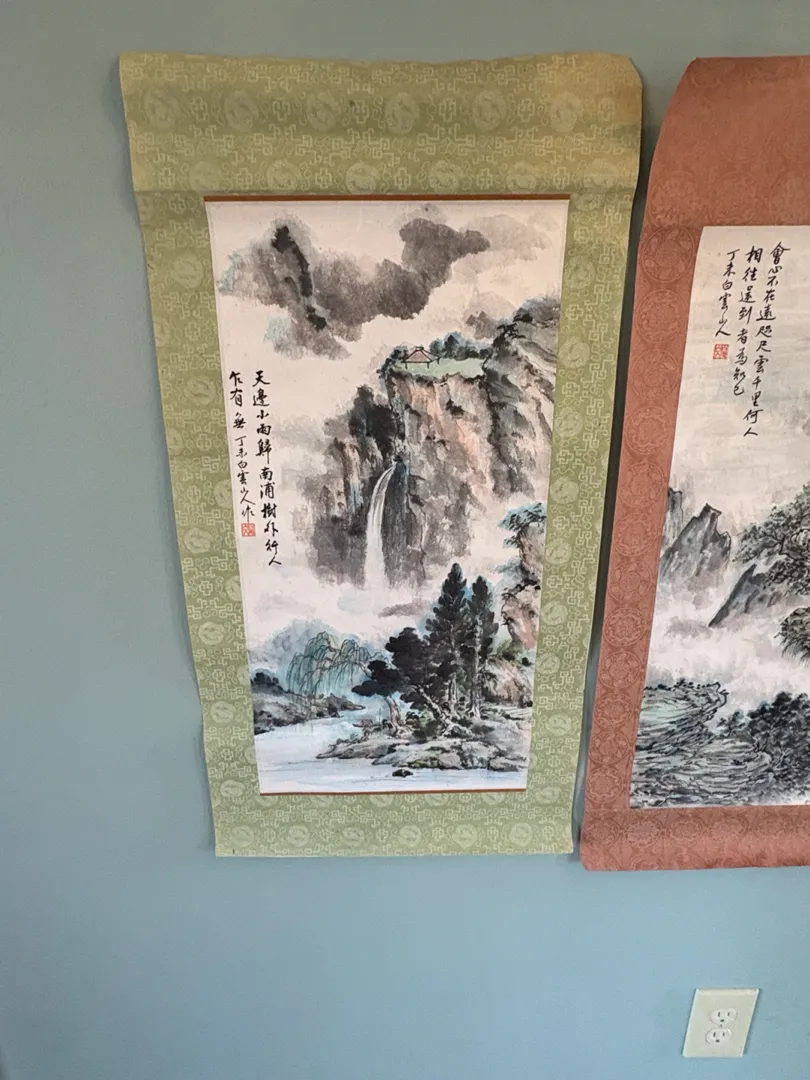 天邊小雨歸南浦樹外行人
乍有無 丁未白雲山人作
會心不在遠咫尺雲千里何人
相往還到者為知己
丁未白雲山人